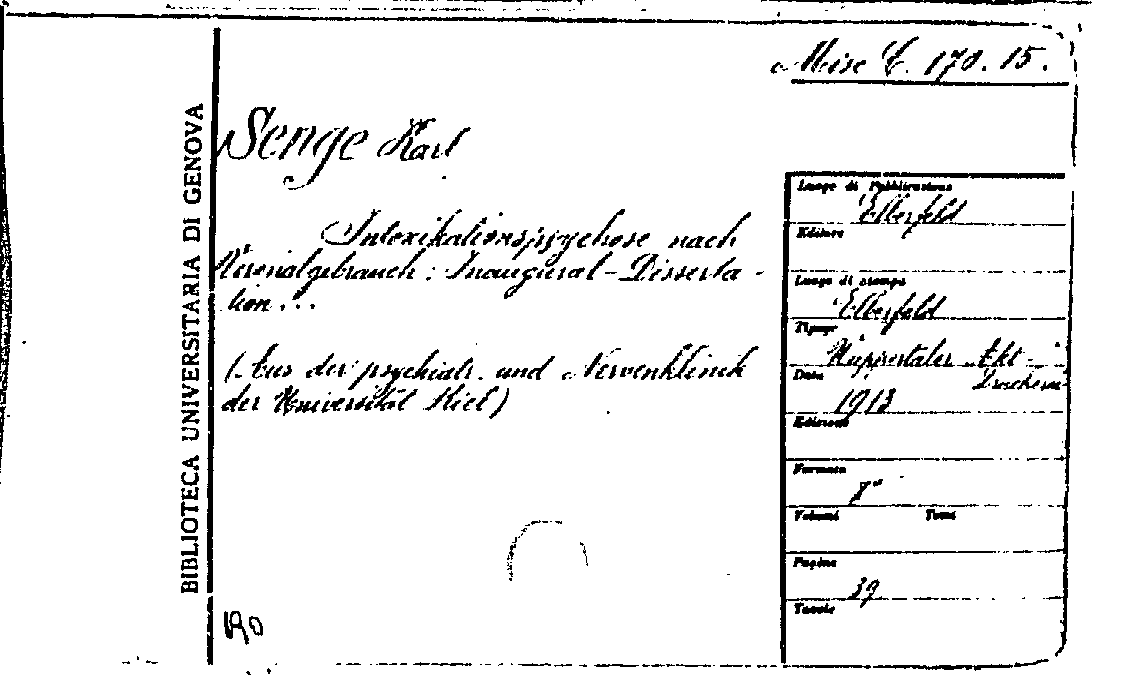 BIBLIOTECA UNIVERSITARIA DI GENOVA
Misc C. 170. 15.
Senge Karl
Intoxikationspsychose nach
Veronalgebrauch : Inaugural-Disserta-
tion...
(Aus der psychiatr. und Nervenklinik
der Universität Kiel)
Luogo di Pubblicazione
Elberfeld
Editore
Luogo di stampa
Elberfeld
Tipogr
Wuppertaler Akt-
Druckerei
Data
1913
Edizione
Formato
8°
Volumi Tomi
Pagine
39
Tavole